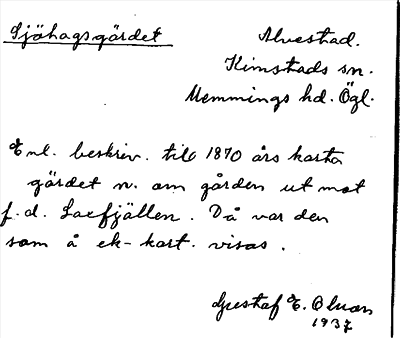 Sjöhagsgärdet
Alvestad.
Kimstads sn.
Memmings hd. Ögl.
Enl. beskriv. till 1870 års karta
gärdet n. om gården ut mot
f.d. Laefjällen. Då var den
som å ek-kart. visas.
Gustaf E. Olson
1937